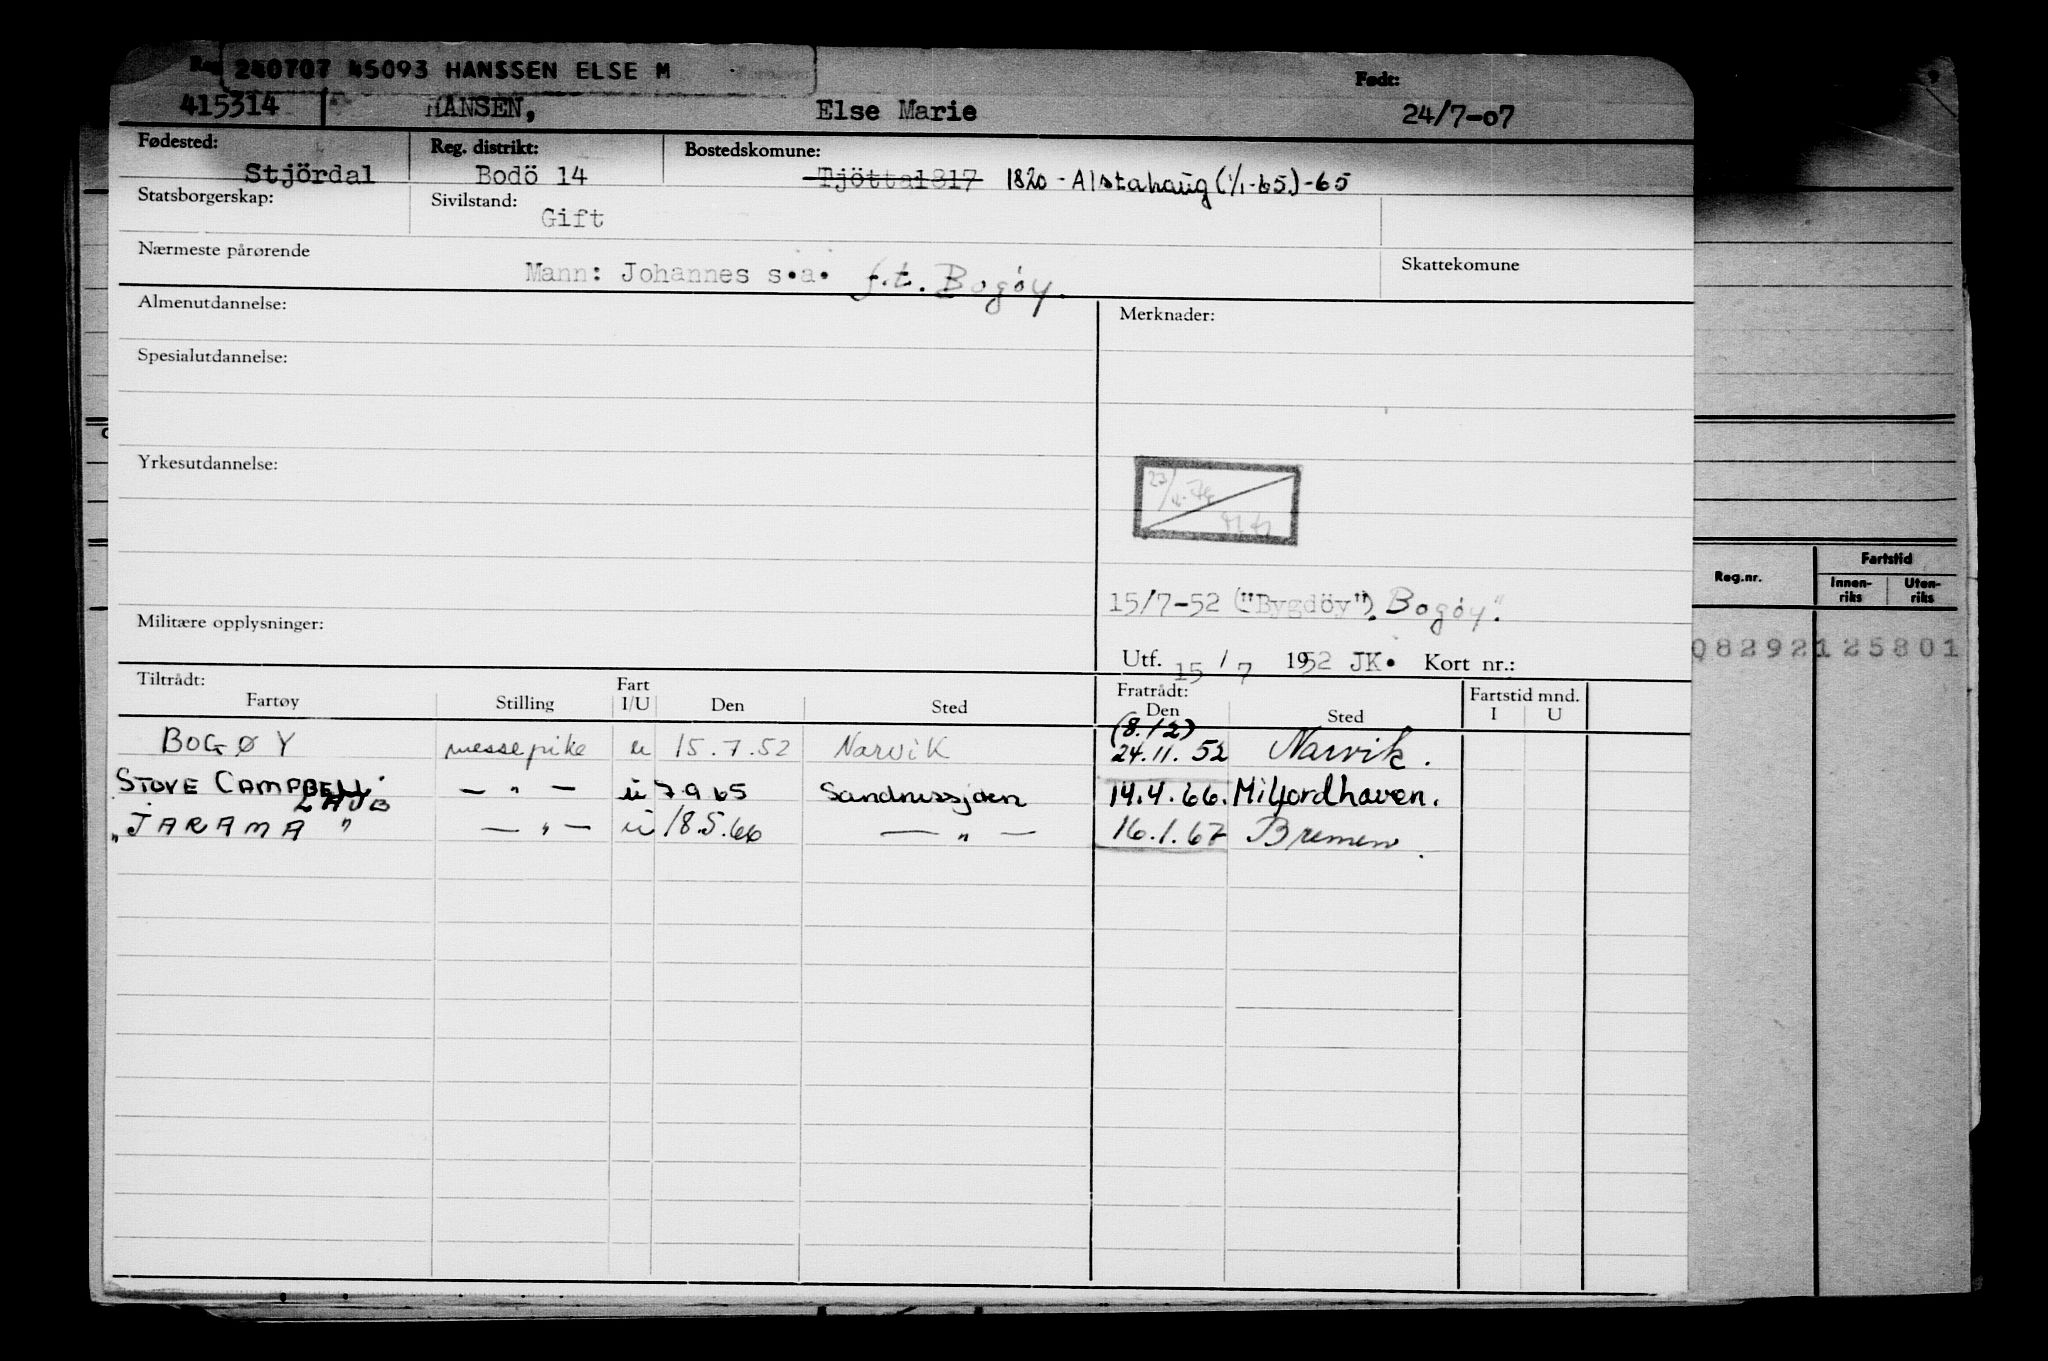 Reg
240707 45093 HANSSEN ELSE M
Født:
415314 HANSEN, Else Marie 24/7-07
Fødested: Reg. distrikt: Bostedskomune:
Stjördal Bodö 14 Tjötta1817 1820 - Alstahaug (1/1-65) -65
Statsborgerskap: Sivilstand:
Gift
Nærmeste pårørende Skattekomune
Mann: Johannes s.a. f.t. Bogöy.
Almenutdannelse: Merknader:
Spesialutdannelse:
Yrkesutdannelse:
15/7-52 ("Bygdöy"). Bogöy".
Militære opplysninger:
Utf. 15 / 7 1952 JK. Kort nr.:
Tiltrådt: Fratrådt: Fartstid mnd.
Fartøy Stilling Fart I/U Den Sted Den Sted I U
BOGØY messepike u 15.7.52 Narvik (8.12) 24.11.52 Narvik.
STOVE CAMPBELL — " — u 7 9 65 Sandnessjøen 14.4.66. Milfordhaven.
"JARAMA" — " — u 18.5.66 — " — 16.1.67 Bremen.
Reg.nr. Fartstid
Innen-riks Uten-riks
08292125801